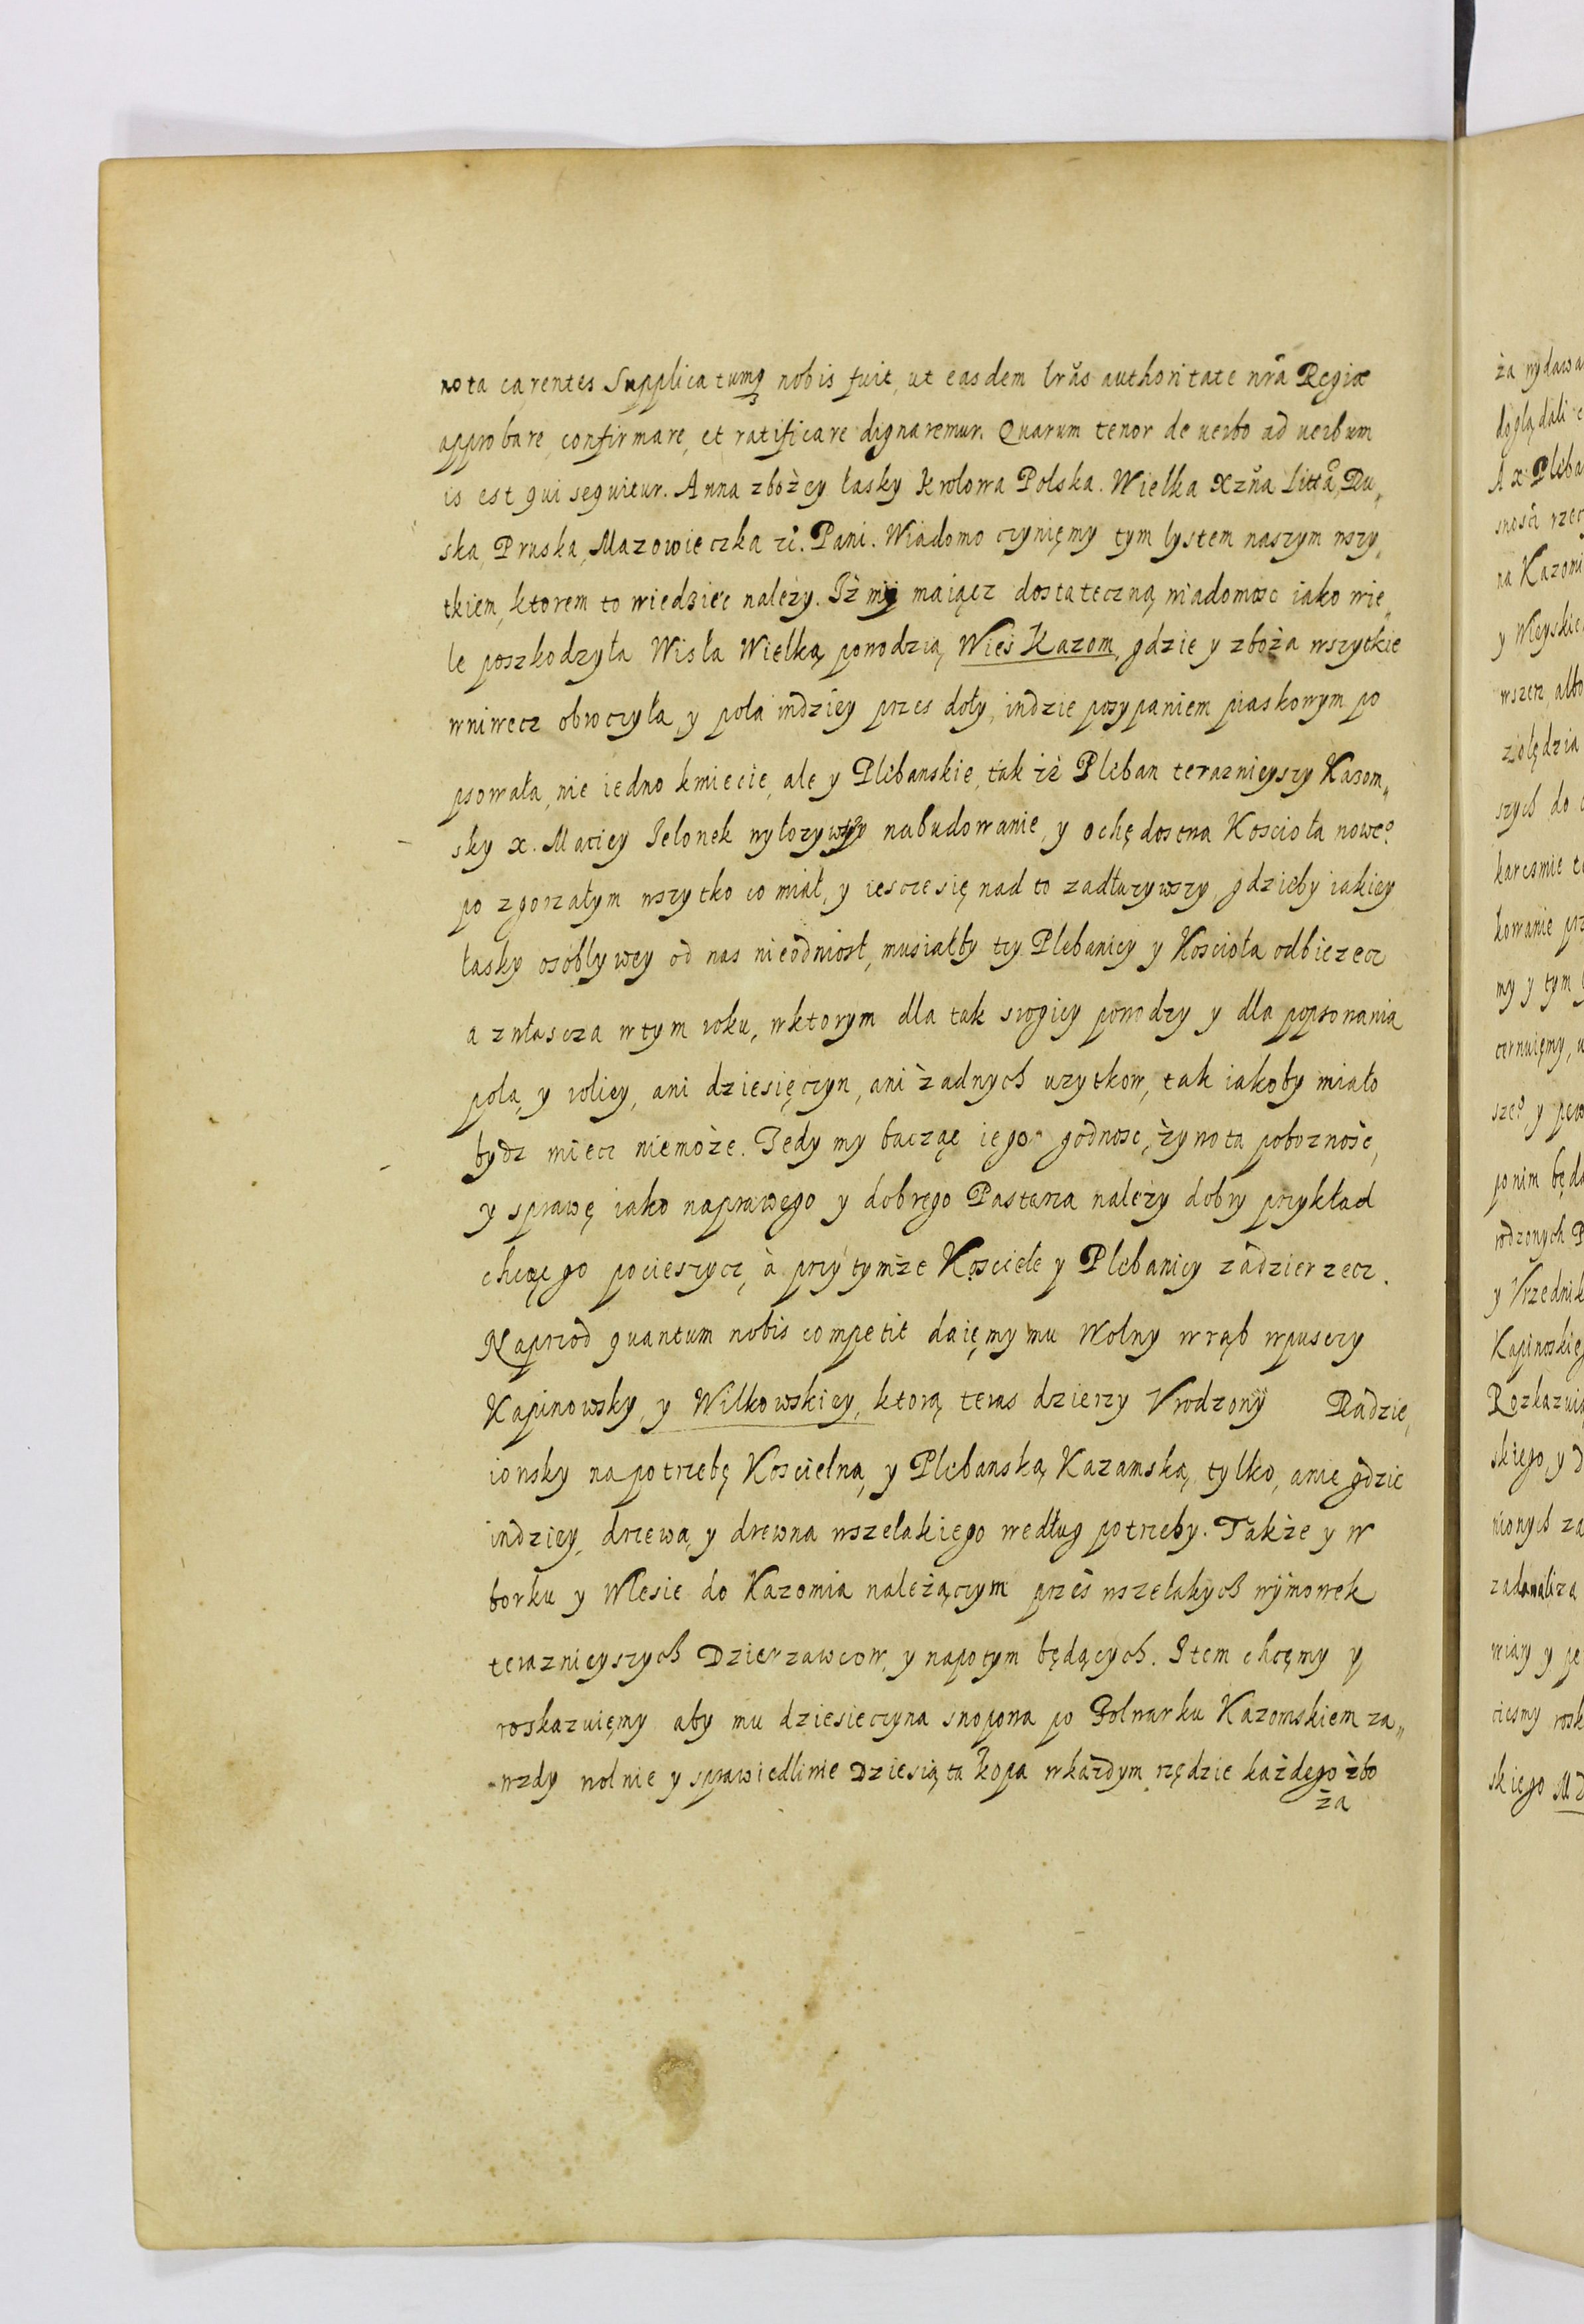 nota carentes Supplicatumq nobis fuit, ut easdem lr̃as authoritate nr̃a Regia
approbare, confirmare, et ratificare dignaremur. Quarum tenor de uerbo ad uerbum
is est qui sequitur. Anna zbożey łasky Krolowa Polska. Wielka Xżna Litta, Ru„
ska, Pruska, Mazowieczka zċ. Pani. Wiadomo czynięmy tym lystem naszym wszy„
tkiem, ktorem to wiedzieć należy. Iż my maiącz dostateczną wiadomosc iako wie„
le poszkodzyła Wisła Wielką powodzią Wieś Kazom, gdzie y zboża wszytkie
wniwecz obroczyła, y pola indziey przes doły, indzie posypaniem piaskowym po
psowała, nie iedno kmiecie, ale y Plebanskie, tak iż Pleban teraznieyszy Kazom„
sky x. Maciey Ielonek wyłozywszy nabudowanie, y ochędostwa Kosciola noweº
po zgorzałym wszytko co miał, y iescze się nad to zadłuzywszy, gdzieby iakiey
łasky osoblywey od nas nieodniosł, musiałby tey Plebaniey y Kosciola odbiezecz
a zwłascza wtym roku, wktorym dla tak srogiey powodzy y dla popsowania
pola, y roliey, ani dziesięczyn, ani żadnych uzytkow, tak iakoby miało
bydz miecz niemoże. Tedy my baczą iego godnosc, żywota poboznośc,
y sprawę iako naprawego y dobrego Pasterza należy dobry przykład
chcąc go pocieszycz, à przy tymże Kościele y Plebaniey zàdzierzecz.
Naprzod quantum nobis competit daięmy mu Wolny wrąb wpusczy
Kapinowsky, y Wilkowskiey, ktorą teras dzierzy Vrodzony Radzie„
iowsky na potrzebę Koscielną, y Plebanską Kazamską, tylko, anie gdzie
indziey, drzewa, y drewna wszelakiego według potrzeby. Także y w
borku y Wlesie do Kazomia należączym przes wszelakych wymowek
teraznieyszych Dzierzawcow, y napotym będących. Item chcęmy y
roskazuięmy aby mu dziesieczyna snopowa po Folwarku Kazomskiem za„
wzdy wolnie y sprawiedliwie Dziesiąta kopa wkażdym rzędzie każdego żbo
ża